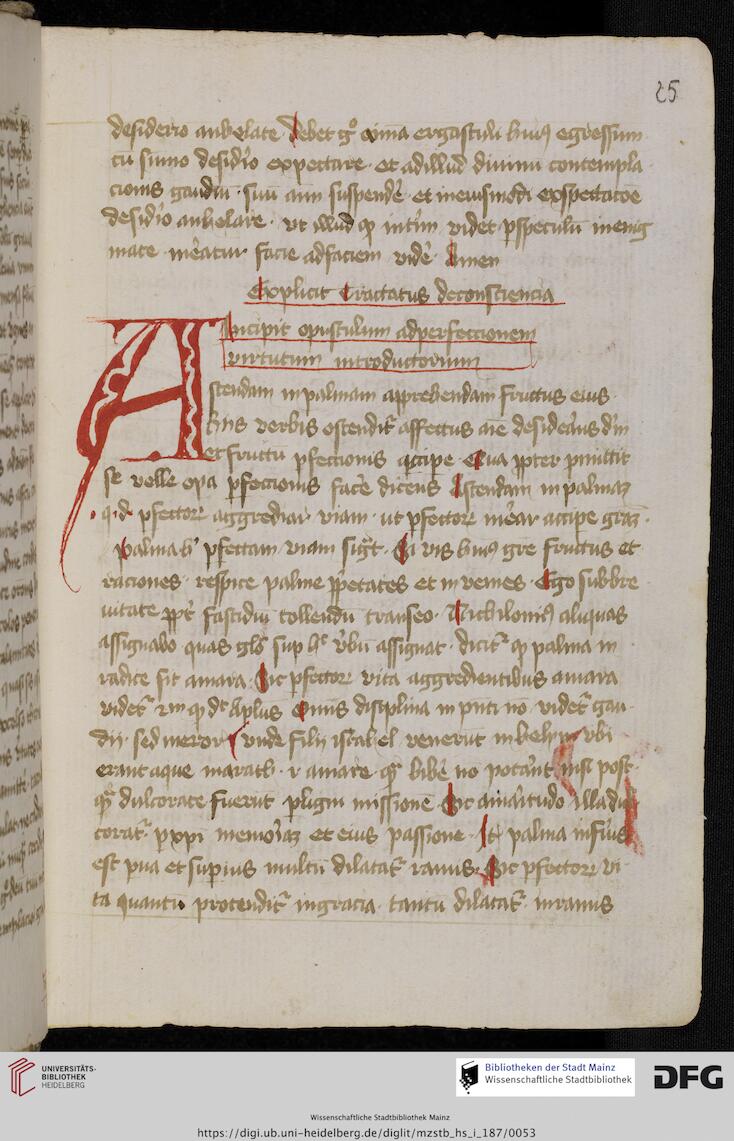 25
desiderio anhelate Debet gͦ oīma ergastuli huiꝰ egressum
cū sūmo desid'io expectare et ad illud diuinū contempla
cionis gaudiū suū aīm suspendē et in eiusmodi exspectacōe
desid'io anhelare vt illud qꝫ intim videt ꝑ speculū in enig
mate mēatur facie ad faciem vidē Amen
Explicit Tractatus de consciencia
Incipit opusculum ad perfeccionem
virtutum introductorium
Ascendam in palmam apprehendam fructus eius
hiis verbis ostendit᷑ affectus aīe desid'ans dīn
et fructū ꝑfeccionis accipe Qua ꝓpter ꝓmittit
se velle oꝑa ꝑfeccionis facē dicens Ascendam in palmaꝫ
q.d. ꝑfectorꝫ aggrediar viam ut ꝑfectorꝫ mēar accipe graꝫ
palma h' ꝑfectam viam sigt᷑ Si vis huiꝰ gre fructus et
raciones respice palme ꝓpetates et inuenies Ego sub bre
uitate ꝓpt' fastidiū tollendū transeo Nichilominꝰ aliquas
assignabo quas glo' sup h' v'bū assignat dicit᷑ qꝫ palma in
radice sit amara Sic ꝑfectorꝫ vita aggredientibus amara
videt᷑ vn̄ qꝫ dt Aplus Omnis disciplina in p̄nti nō videt᷑ gau
dij sed meror vnde filij israhel venerūt in helym vbi
erant aque marath r amare qꝫ bibē nō potant nisi post
qꝫ dulcorate fuerūt ꝑ ligni missionē Hec amaritudo illa dul
corat᷑ ꝑ xp̄i memoriaꝫ et eius passione It' palma infīus
est ꝑua et superius multū dilatat᷑ ramis Sic ꝑfectorꝫ vi
ta quantū protendit᷑ in gracia tantū dilatat᷑ in ramis
UNIVERSITÄTS-
BIBLIOTHEK
HEIDELBERG
Bibliotheken der Stadt Mainz
Wissenschaftliche Stadtbibliothek
DFG
Wissenschaftliche Stadtbibliothek Mainz
https://digi.ub.uni-heidelberg.de/diglit/mzstb_hs_i_187/0053